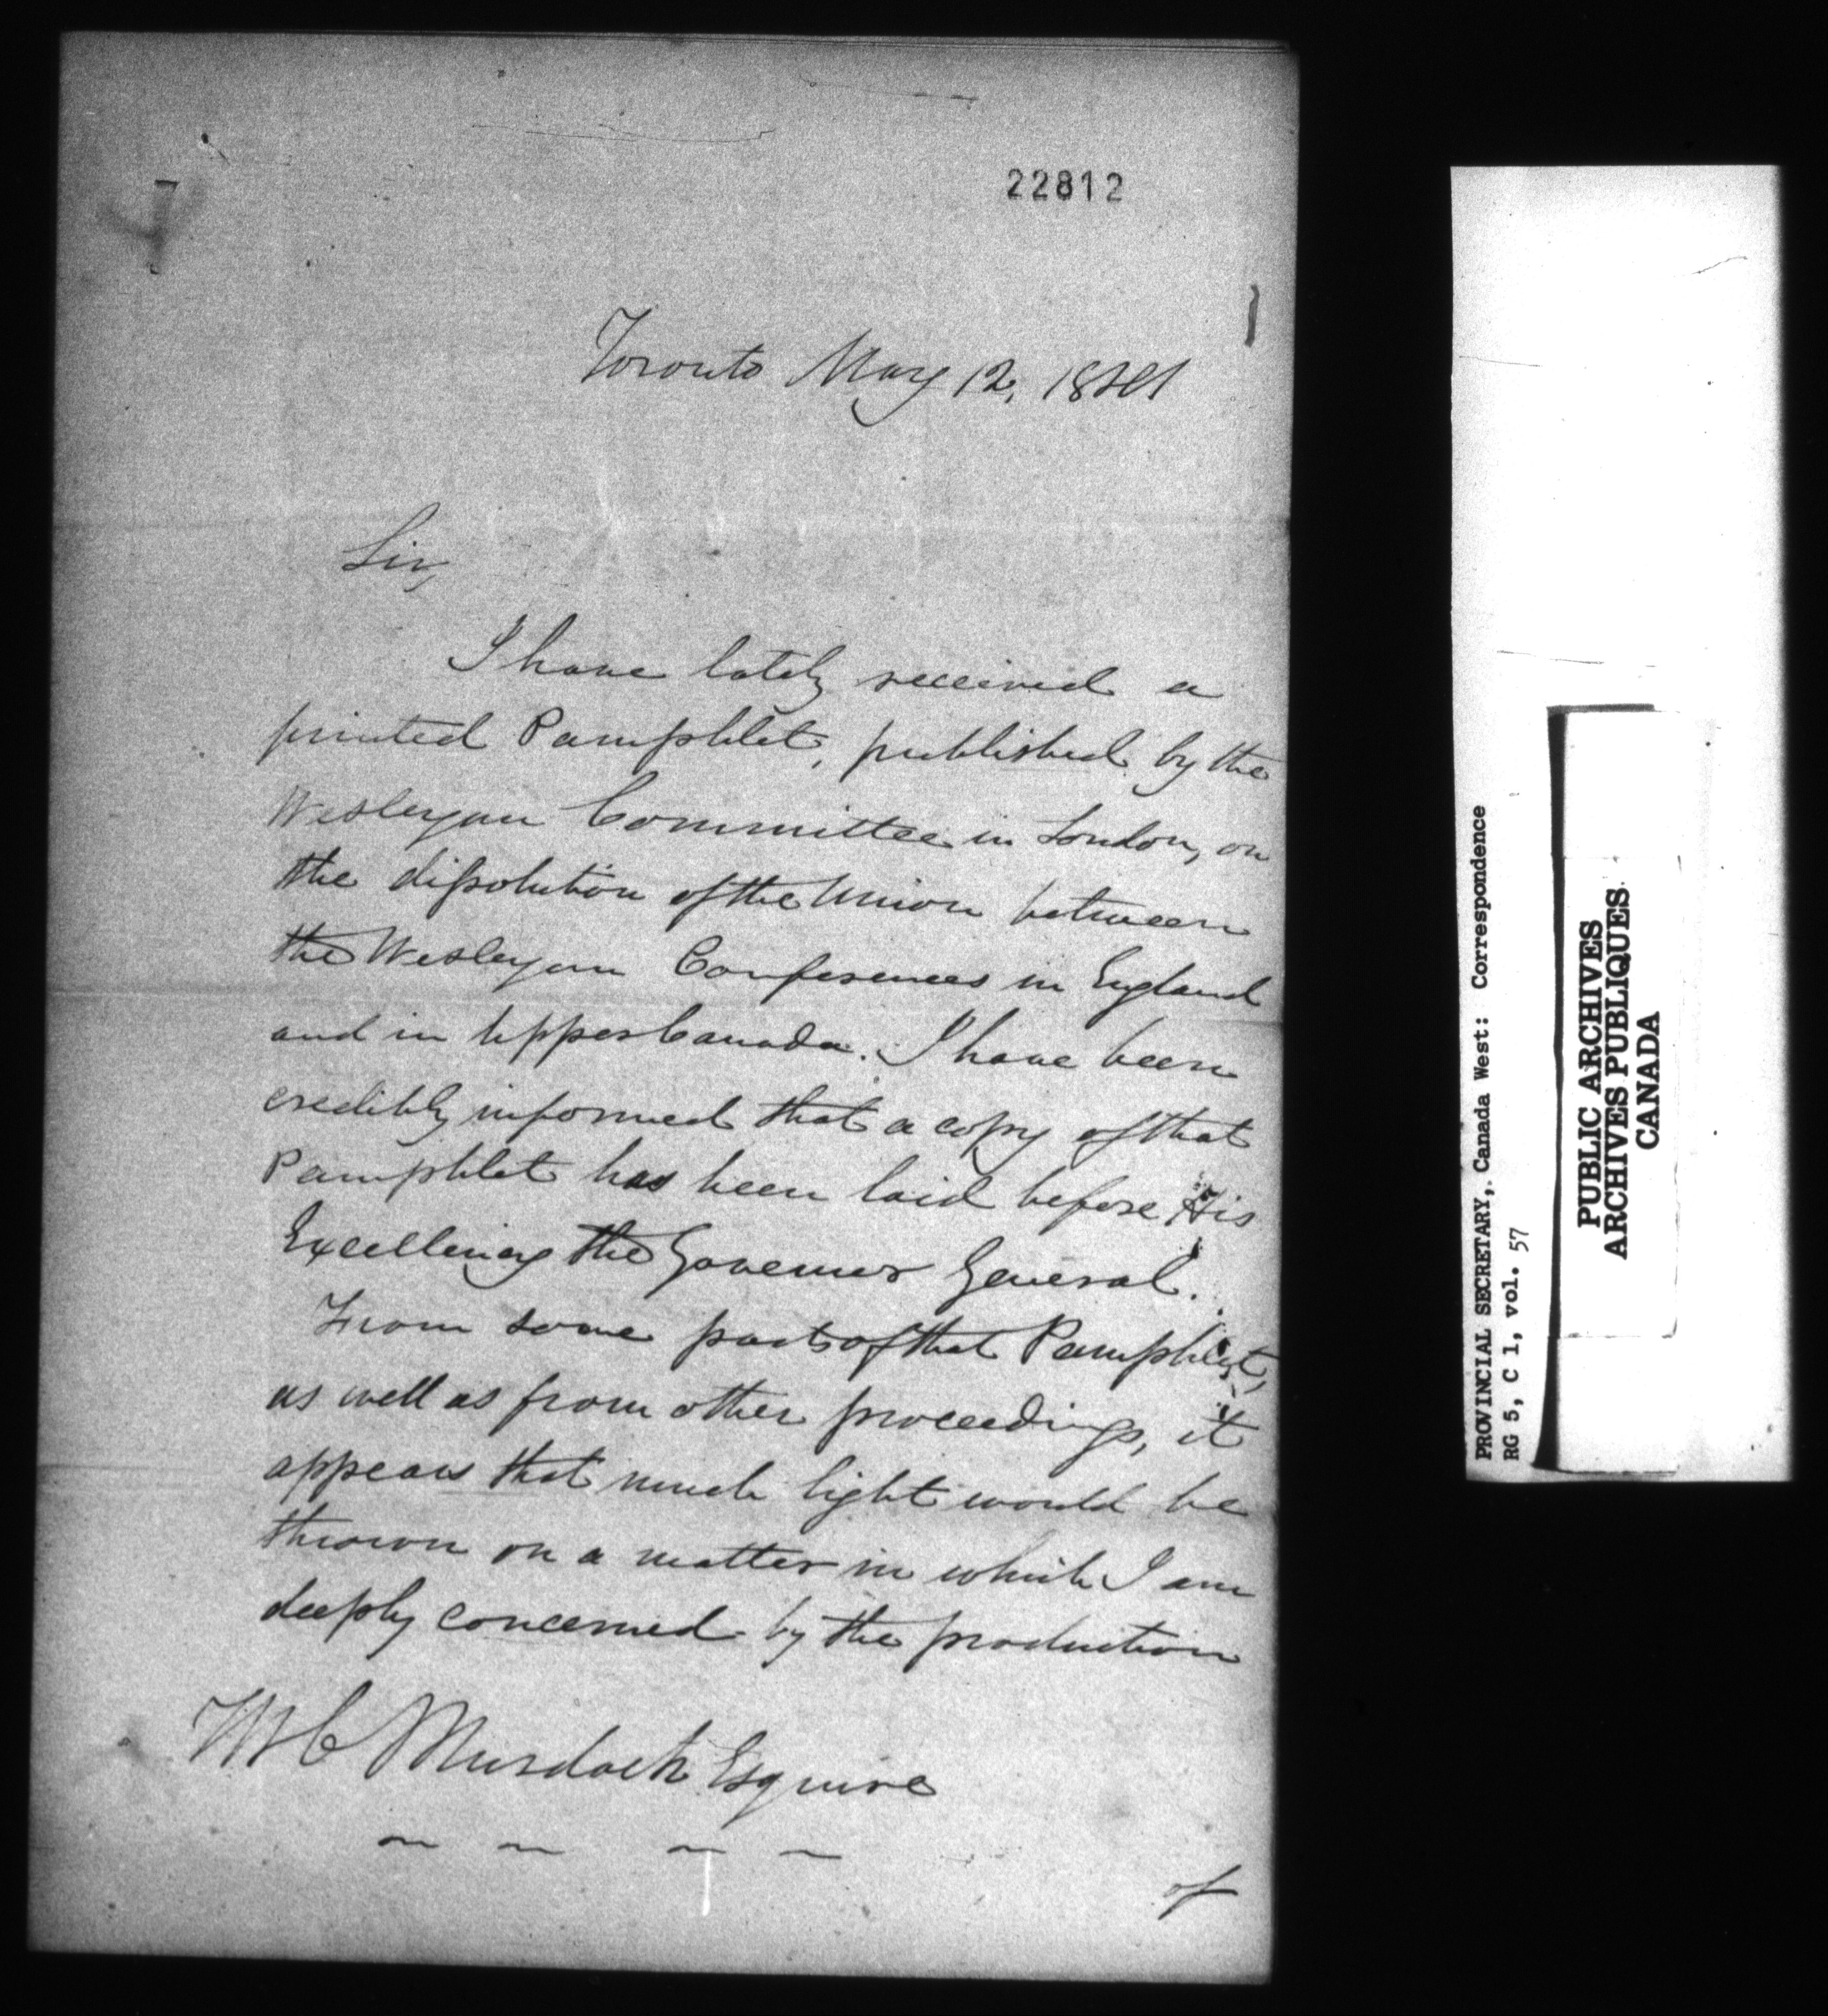 22812
Toronto May 12, 1841
Sir,
I have lately received a
printed Pamphlet, published by the
Wesleyan Committee in London, on
the dissolution of the Union between
the Wesleyan Conferences in England
and in Upper Canada. I have been
credibly informed that a copy of that
Pamphlet has been laid before His
Excellency the Governor General.
From some parts of that Pamphlet,
as well as from other proceedings, it
appears that much light would be
thrown on a matter in which I am
deeply concerned by the production
W C Murdoch Esquire
of
PROVINCIAL SECRETARY, Canada West: Correspondence
RG 5, C 1, vol. 57
PUBLIC ARCHIVES
ARCHIVES PUBLIQUES
CANADA